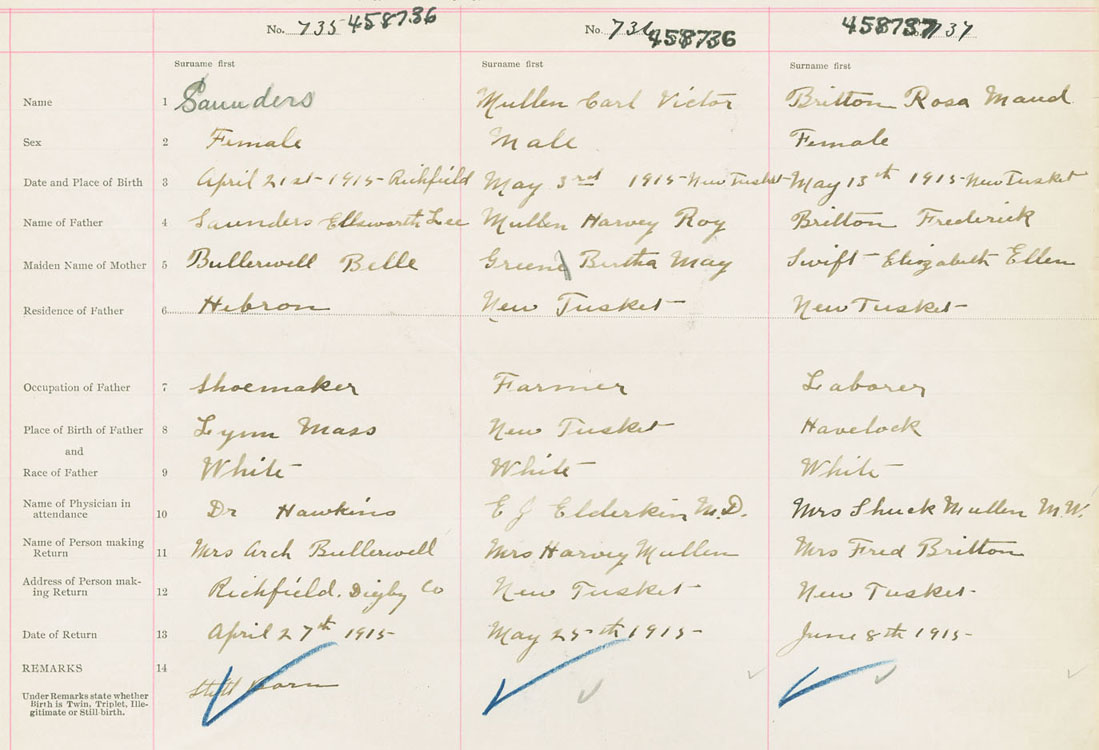 No. 735 458736 No. 736 458736 458737 No. 737
Surname first Surname first Surname first
Name 1 Saunders Mullen Carl Victor Britton Rosa Maud
Sex 2 Female Male Female
Date and Place of Birth 3 April 21st 1915 - Richfield May 3rd 1915 - New Tusket May 13th 1915 - New Tusket
Name of Father 4 Saunders Ellsworth Lee Mullen Harvey Roy Britton Frederick
Maiden Name of Mother 5 Bullerwell Belle Greene Bertha May Swift - Elizabeth Ellen
Residence of Father 6 Hebron New Tusket New Tusket
Occupation of Father 7 Shoemaker Farmer Laborer
Place of Birth of Father 8 Lynn Mass New Tusket Havelock
and
Race of Father 9 White White White
Name of Physician in
attendance 10 Dr Hawkins E J Elderkin M.D. Mrs Shuck Mullen M.W.
Name of Person making
Return 11 Mrs Arch Bullerwell Mrs Harvey Mullen Mrs Fred Britton
Address of Person mak-
ing Return 12 Richfield. Digby Co New Tusket New Tusket
Date of Return 13 April 27th 1915 May 25th 1915 June 8th 1915
REMARKS 14 Still Born
Under Remarks state whether
Birth is Twin, Triplet, Ille-
gitimate or Still-birth.